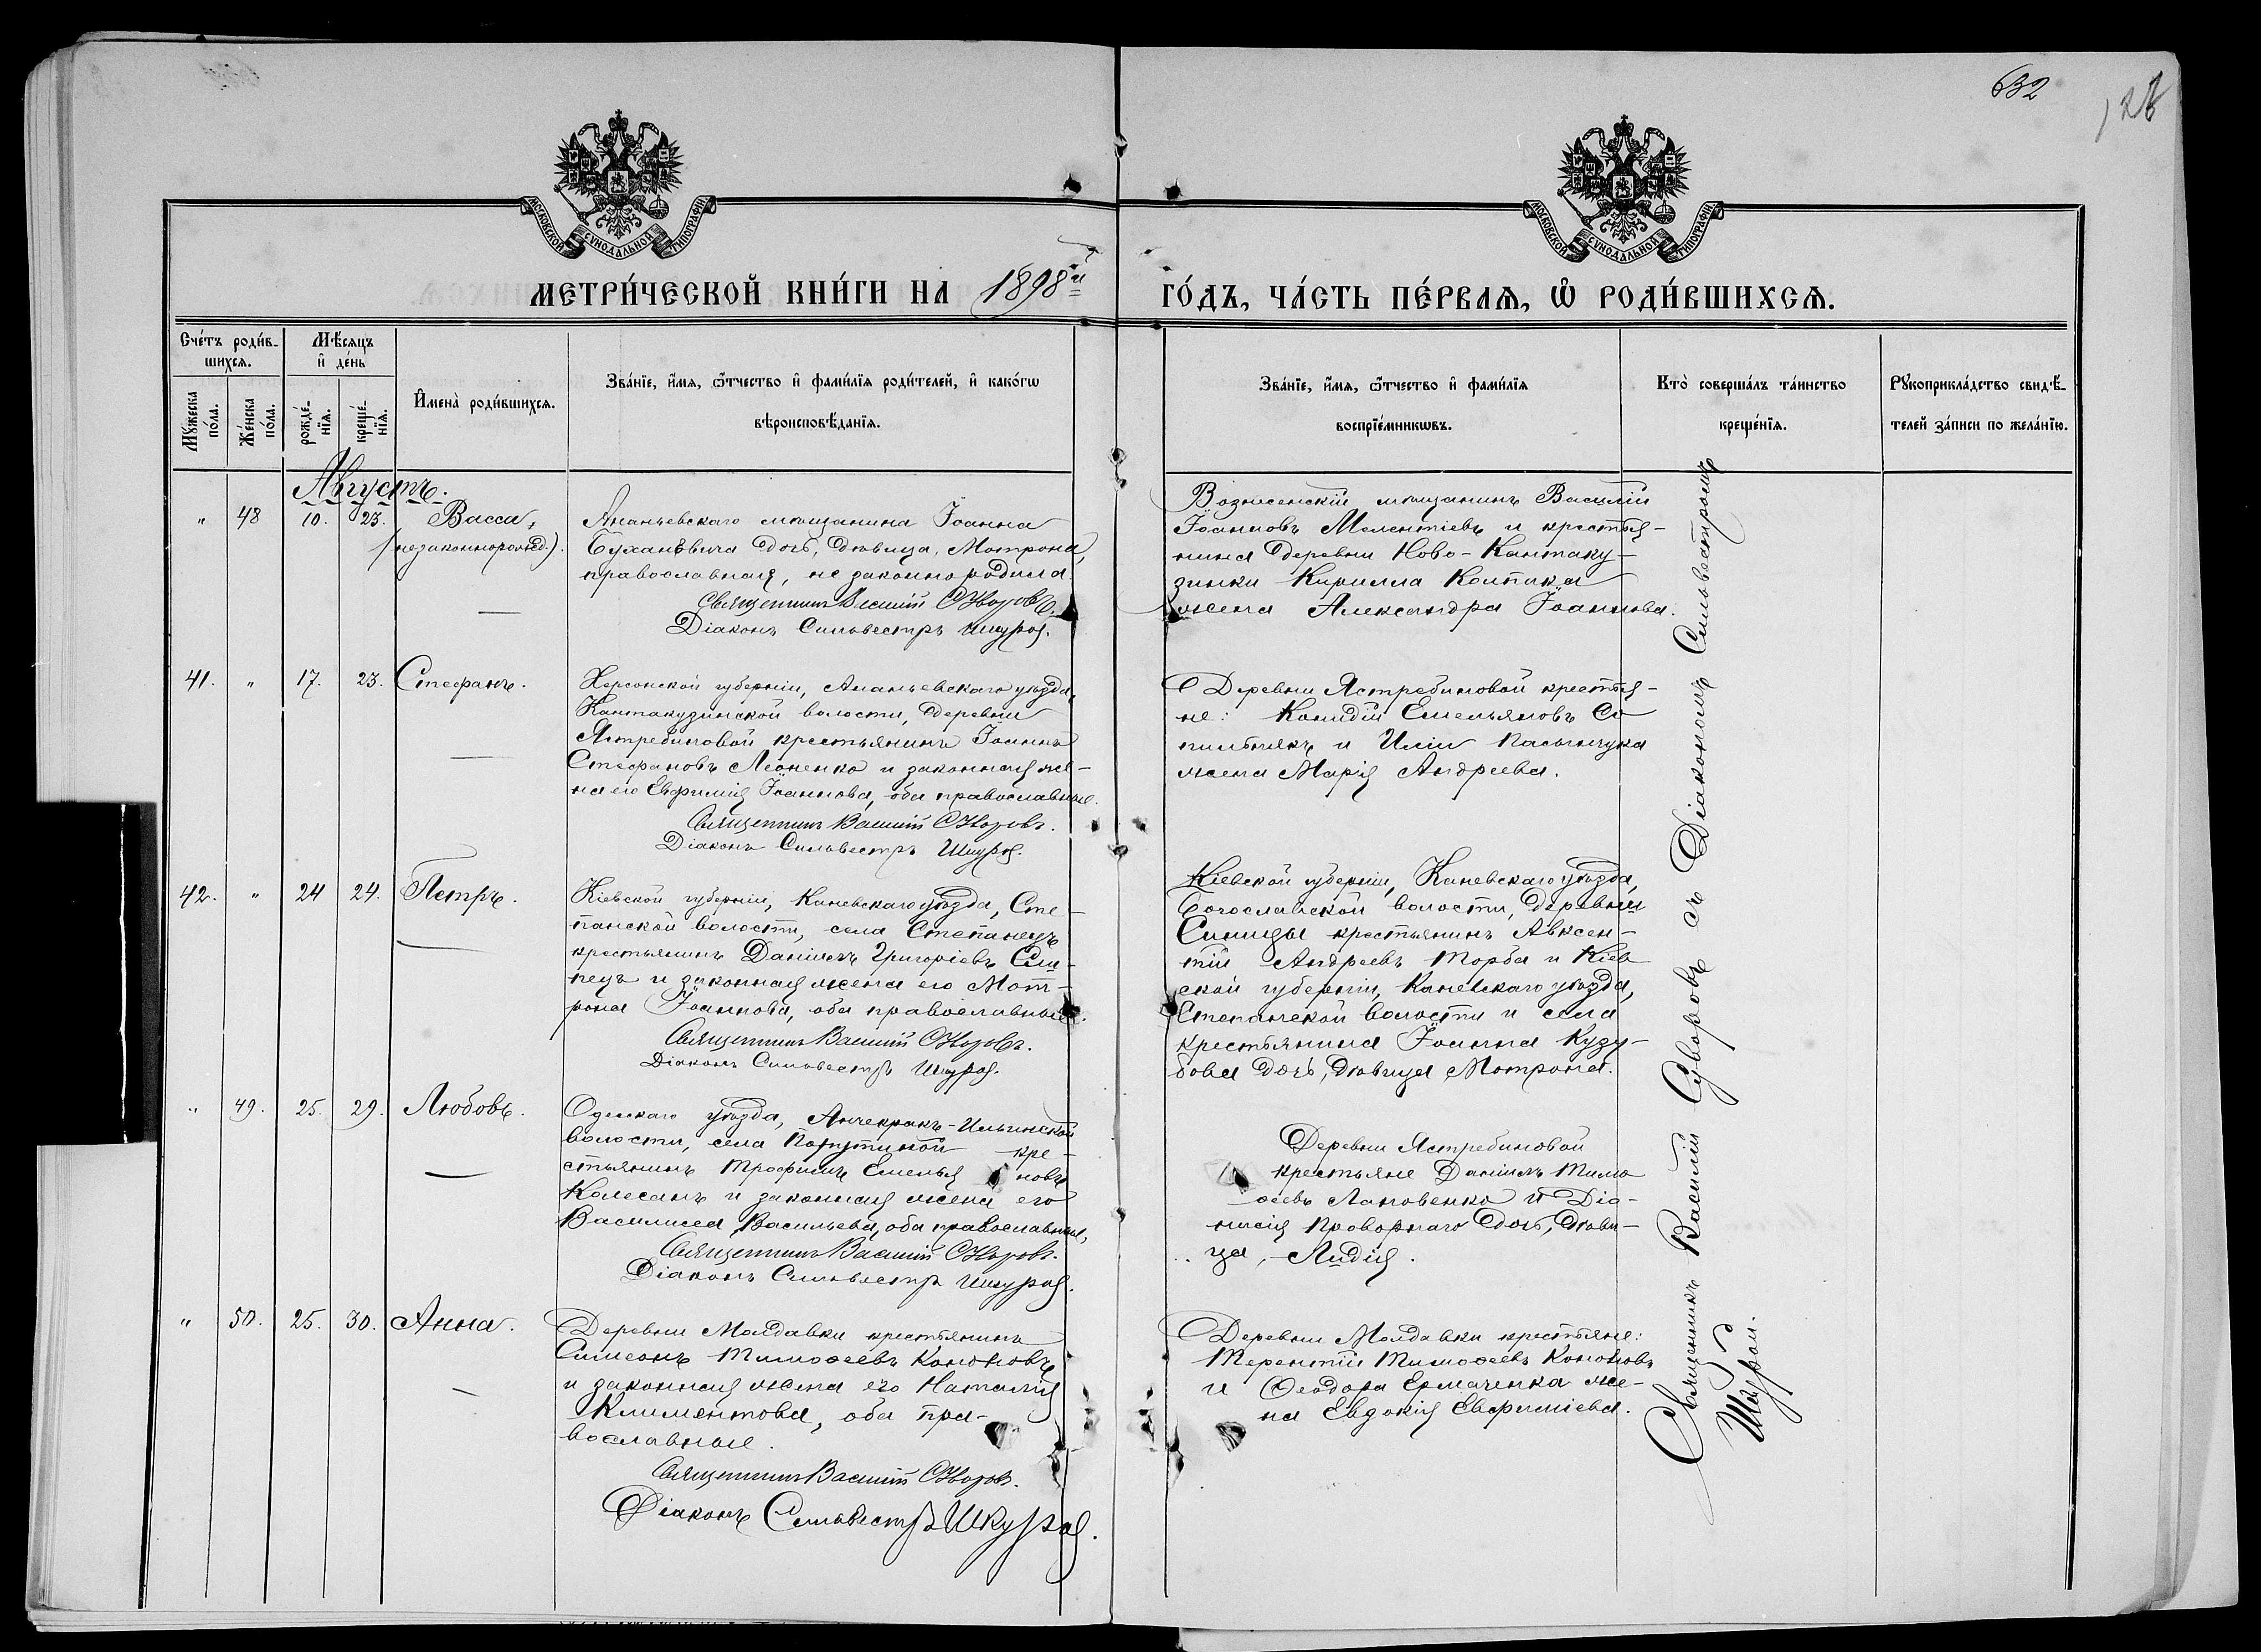 632
МОСКОВСКОЙ СѴНОДАЛЬНОЙ ТИПОГРАФІИ
МОСКОВСКОЙ СѴНОДАЛЬНОЙ ТИПОГРАФІИ
МЕТРИ́ЧЕСКОЙ КНИ́ГИ НА 1898й ГО́ДЪ, ЧА́СТЬ ПЕ́РВАѦ, Ѽ РОДИ́ВШИХСѦ.
Сче́тъ роди́в-
шихсѧ.
Мꙋ́жеска по́ла.
Же́нска по́ла.
Мѣ́сѧцъ и҆ де́нь
рожде́-нїѧ.
креще́-нїѧ.
И҆мена̀ роди́вшихсѧ.
Зва́нїе, и҆́мѧ, ѻ҆́тчество и҆ фами́лїѧ роди́телей, и҆ како́гѡ
вѣроисповѣ́данїѧ.
Зва́нїе, и҆́мѧ, ѻ҆́тчество и҆ фами́лїѧ
воспрїе́мникѡвъ.
Кто̀ соверша́лъ та́инство
креще́нїѧ.
Рꙋкоприкла́дство свидѣ́-
телей за́писи по жела́нїю.
Августъ.
" 48 10. 23. Васса,
(незаконнорожд.).
Ананьевскаго мѣщанина Іоанна
Бухановича дочь, дѣвица, Матрона,
православная, незаконнородила
Священникъ Василій Суворовъ.
Діаконъ Сильвестръ Шкурой.
Вознесенскій мѣщанинъ Василій
Іоанновъ Мелентіевъ и крестья-
нина деревни Ново-Кантаку-
зинки Кирилла Колпака
жена Александра Іоаннова.
41. " 17. 23. Стефанъ.
Херсонской губерніи, Ананьевскаго уѣзда,
Кантакузинской волости, деревни
Ястребиновой крестьянинъ Іоаннъ
Стефановъ Леоненко и законная же-
на его Евфимія Іоаннова, оба православные.
Священникъ Василій Суворовъ.
Діаконъ Сильвестръ Шкурой.
Деревни Ястребиновой крестья-
не: Конидій Емельяновъ Со
пильнякъ и Иліи Пасынчука
жена Марія Андреева.
42. " 24 24. Петръ.
Кіевской губерніи, Каневскаго уѣзда, Сте-
панской волости, села Степанецъ
крестьянинъ Даніилъ Григоріевъ Сли-
пецъ и законная жена его Мат-
рона Іоаннова, оба православные.
Священникъ Василій Суворовъ.
Діаконъ Сильвестръ Шкурой.
Кіевской губерніи, Каневскаго уѣзда,
Богославской волости, деревни
Синицы крестьянинъ Авксен-
тій Андреевъ Торба и Кіев
ской губерніи, Каневскаго уѣзда,
Степанской волости и села
крестьянина Іоанна Кузу-
бова дочь, дѣвица Матрона.
" 49. 25. 29. Любовь.
Одесскаго уѣзда, Анчекракъ-Ильинской
волости, села Парутиной кре-
стьянинъ Трофимъ Емелья новъ
Колесанъ и законная жена его
Василиса Васильева, оба православные,
Священникъ Василій Суворовъ.
Діаконъ Сильвестръ Шкурой.
Деревни Ястребиновой
крестьяне Даніилъ Тимо
ѳеевъ Лановенко и Діо-
нисія Проворнаго дочь, дѣви-
ца, Лидія.
" 50. 25. 30. Анна.
Деревни Молдавки крестьянинъ
Симеонъ Тимоѳеевъ Кононовъ
и законная жена его Наталія
Климентова, оба пра-
вославные.
Священникъ Василій Суворовъ.
Діаконъ Сильвестръ Шкурой.
Деревни Молдавки крестьяне:
Терентій Тимоѳеевъ Кононовъ
и Ѳеодора Ермаченка же-
на Евдокія Евфиміева.
Священникъ Василій Суворовъ съ Діакономъ Сильвестромъ
Шкурой.